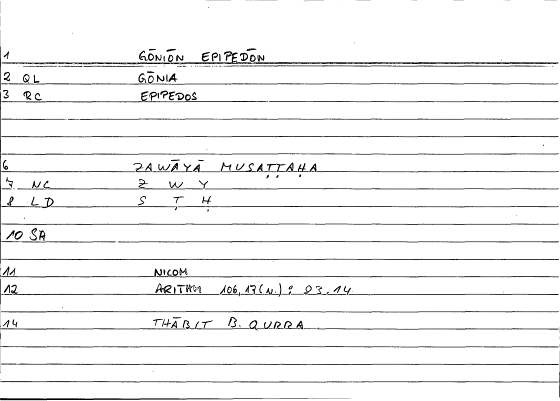 1 GŌNIŌN EPIPEDŌN
2 QL GŌNIA
3 RC EPIPEDOS
6 ZAWĀYĀ MUSAṬṬAḤA
7 NC Z W Y
8 LD S Ṭ Ḥ
10 SA
11 NICOM
12 ARITHM 106,17(N.) : 83.14
14 THĀBIT B. QURRA